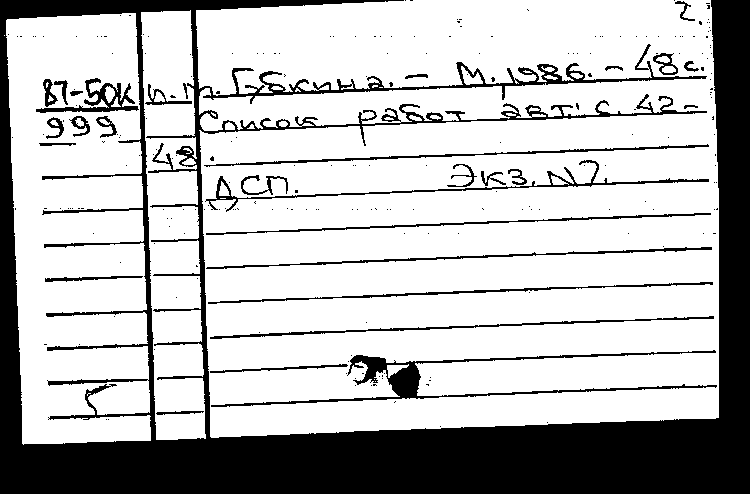 2.
87-50К и.М. Губкина. – М., 1986. – 48 с.
999 Список работ авт.: с. 42–
48.
ДСП. Экз. N7.
5